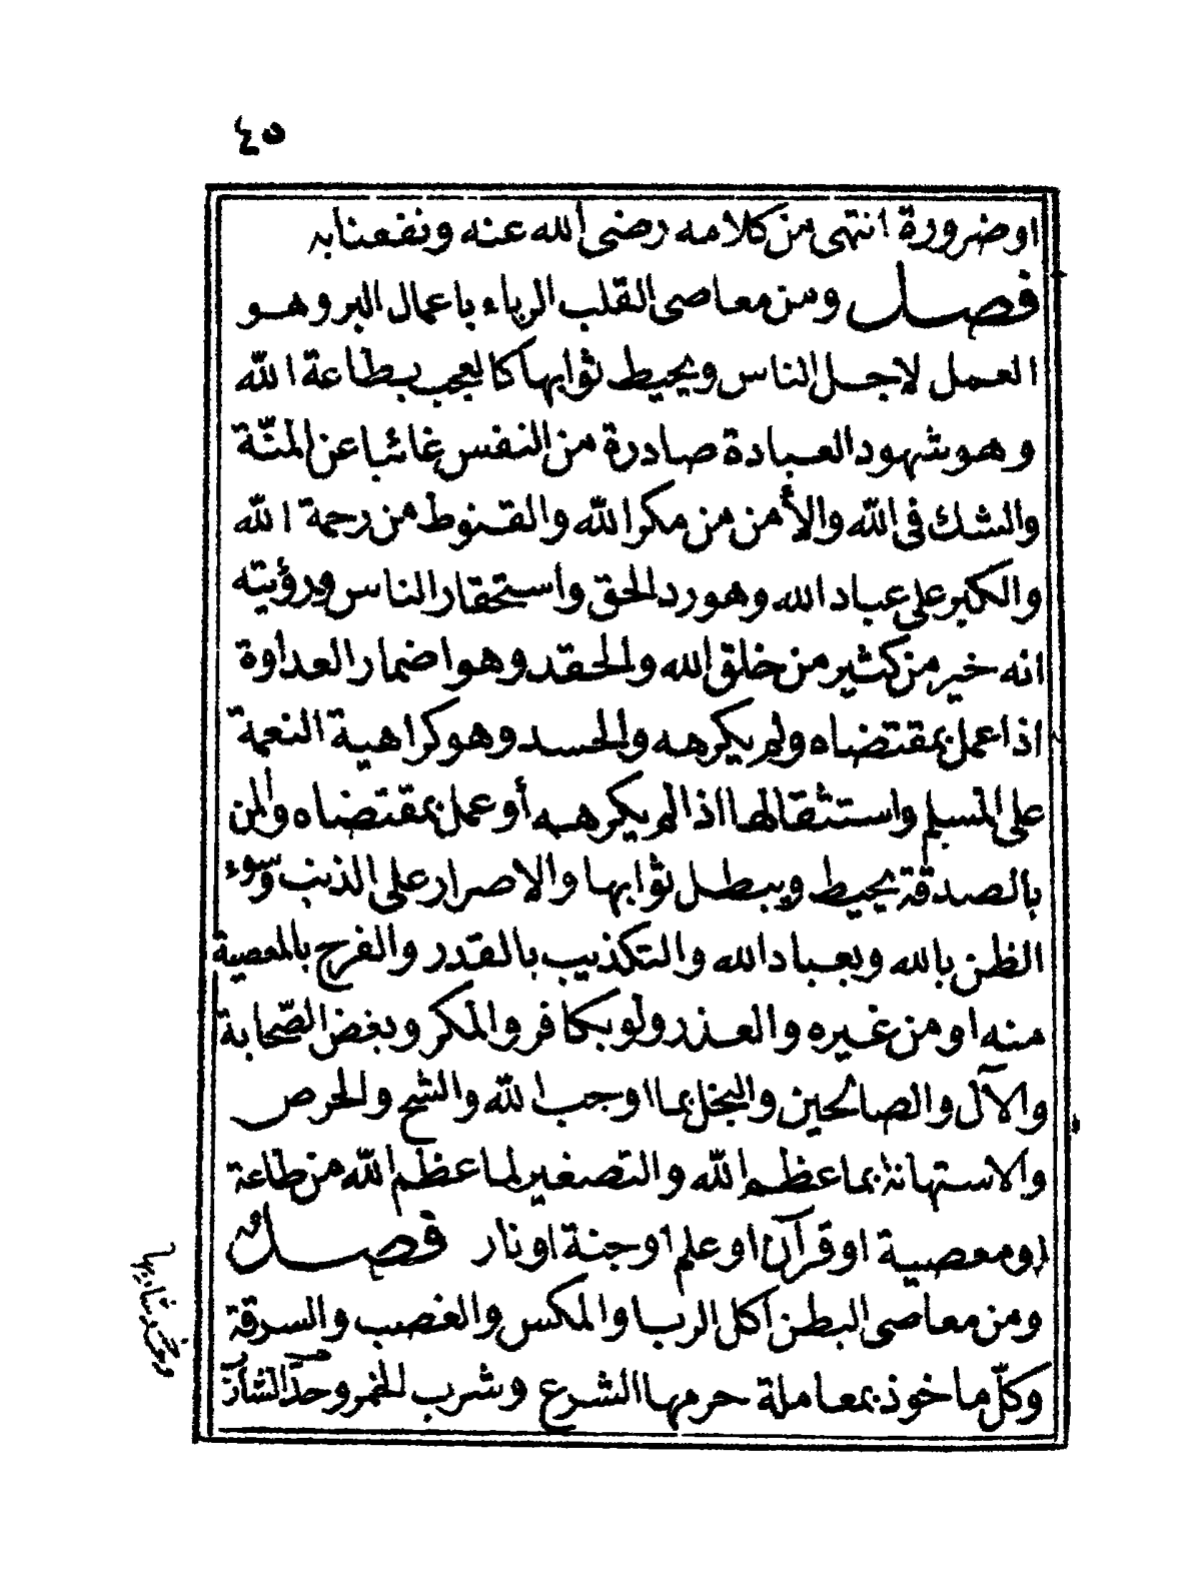 ٤٥
او ضرورة انتهى من كلامه رضى الله عنه ونفعنا به
فصل ومن معاصى القلب الرياء باعمال البر وهو
العمل لاجل الناس ويحيط ثوابها كالعجب بطاعة الله
وهو شهود العبادة صادرة من النفس غائبا عن المنّة
والشك فى الله والأمن من مكر الله والقنوط من رحمة الله
والكبر على عباد الله وهو رد الحق واستحقار الناس ورؤيته
انه خير من كثير من خلق الله والحقد وهو اضمار العداوة
اذا عمل بمقتضاه ولم يكرهه والحسد وهو كراهية النعمة
على المسلم واستثقالها اذا لم يكرهه أو عمل بمقتضاه والمن
بالصدقة يحيط ويبطل ثوابها والاصرار على الذنب وسوء
الظن بالله وبعباد الله والتكذيب بالقدر والفرح بالمعصية
منه او من غيره والعذر ولو بكافر والمكر وبغض الصّحابة
والآل والصالحين والبخل بما اوجب الله والشح والحرص
والاستهانة بما عظم الله والتصغير لما عظم الله من طاعة
او معصية او قرآن او علم او جنة او نار فصل
ومن معاصى البطن اكل الربا والمكس والغصب والسرقة
وكلّ ماخوذ بمعاملة حرمها الشرع وشرب الخمر وحدّ الشارب